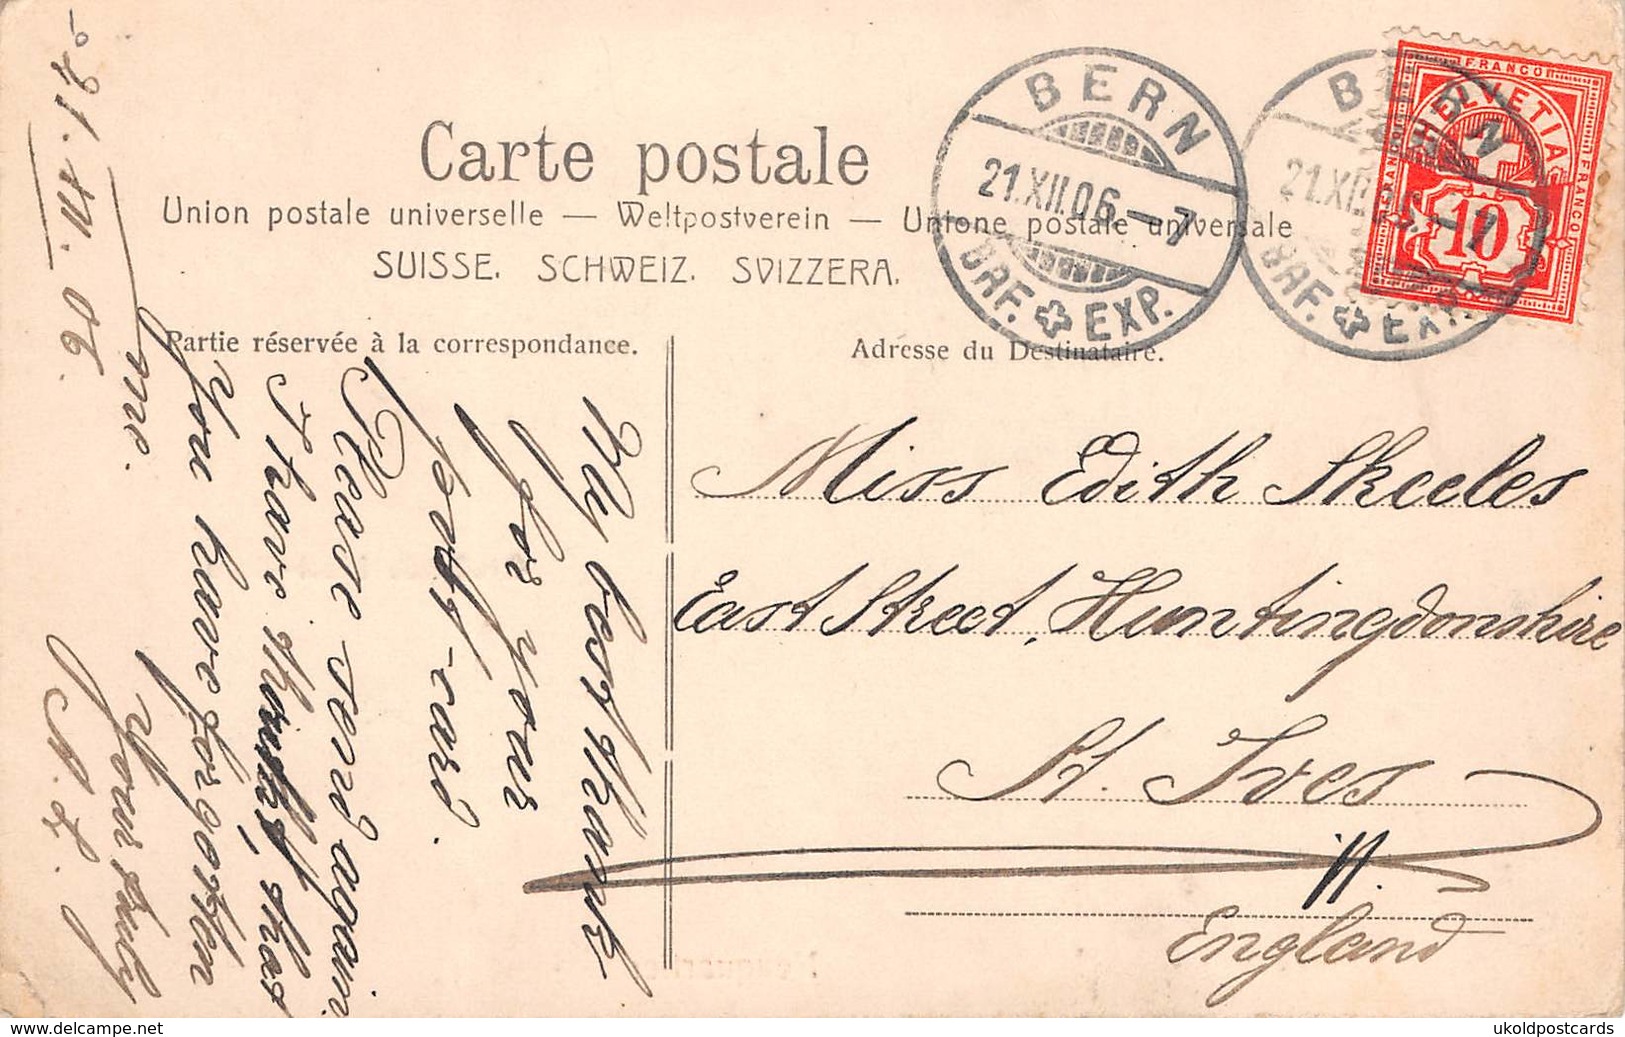 Carte postale
Union postale universelle — Weltpostverein — Unione postale universale
SUISSE. SCHWEIZ. SVIZZERA.
BERN
21.XII.06.–7
BRF. EXP.
BERN
21.XII.06.–7
BRF. EXP.
FRANCO
HELVETIA
FRANCO
FRANCO
10
Partie réservée à la correspondance.
Adresse du Destinataire.
Miss Edith Skeeles
East Street, Huntingdonshire
St. Ives
England
My best thank
for your
post-card.
Please send again
I have think, that
You have forgotten
me.
Yours truly
21. XII. 06.
www.delcampe.net
ukoldpostcards